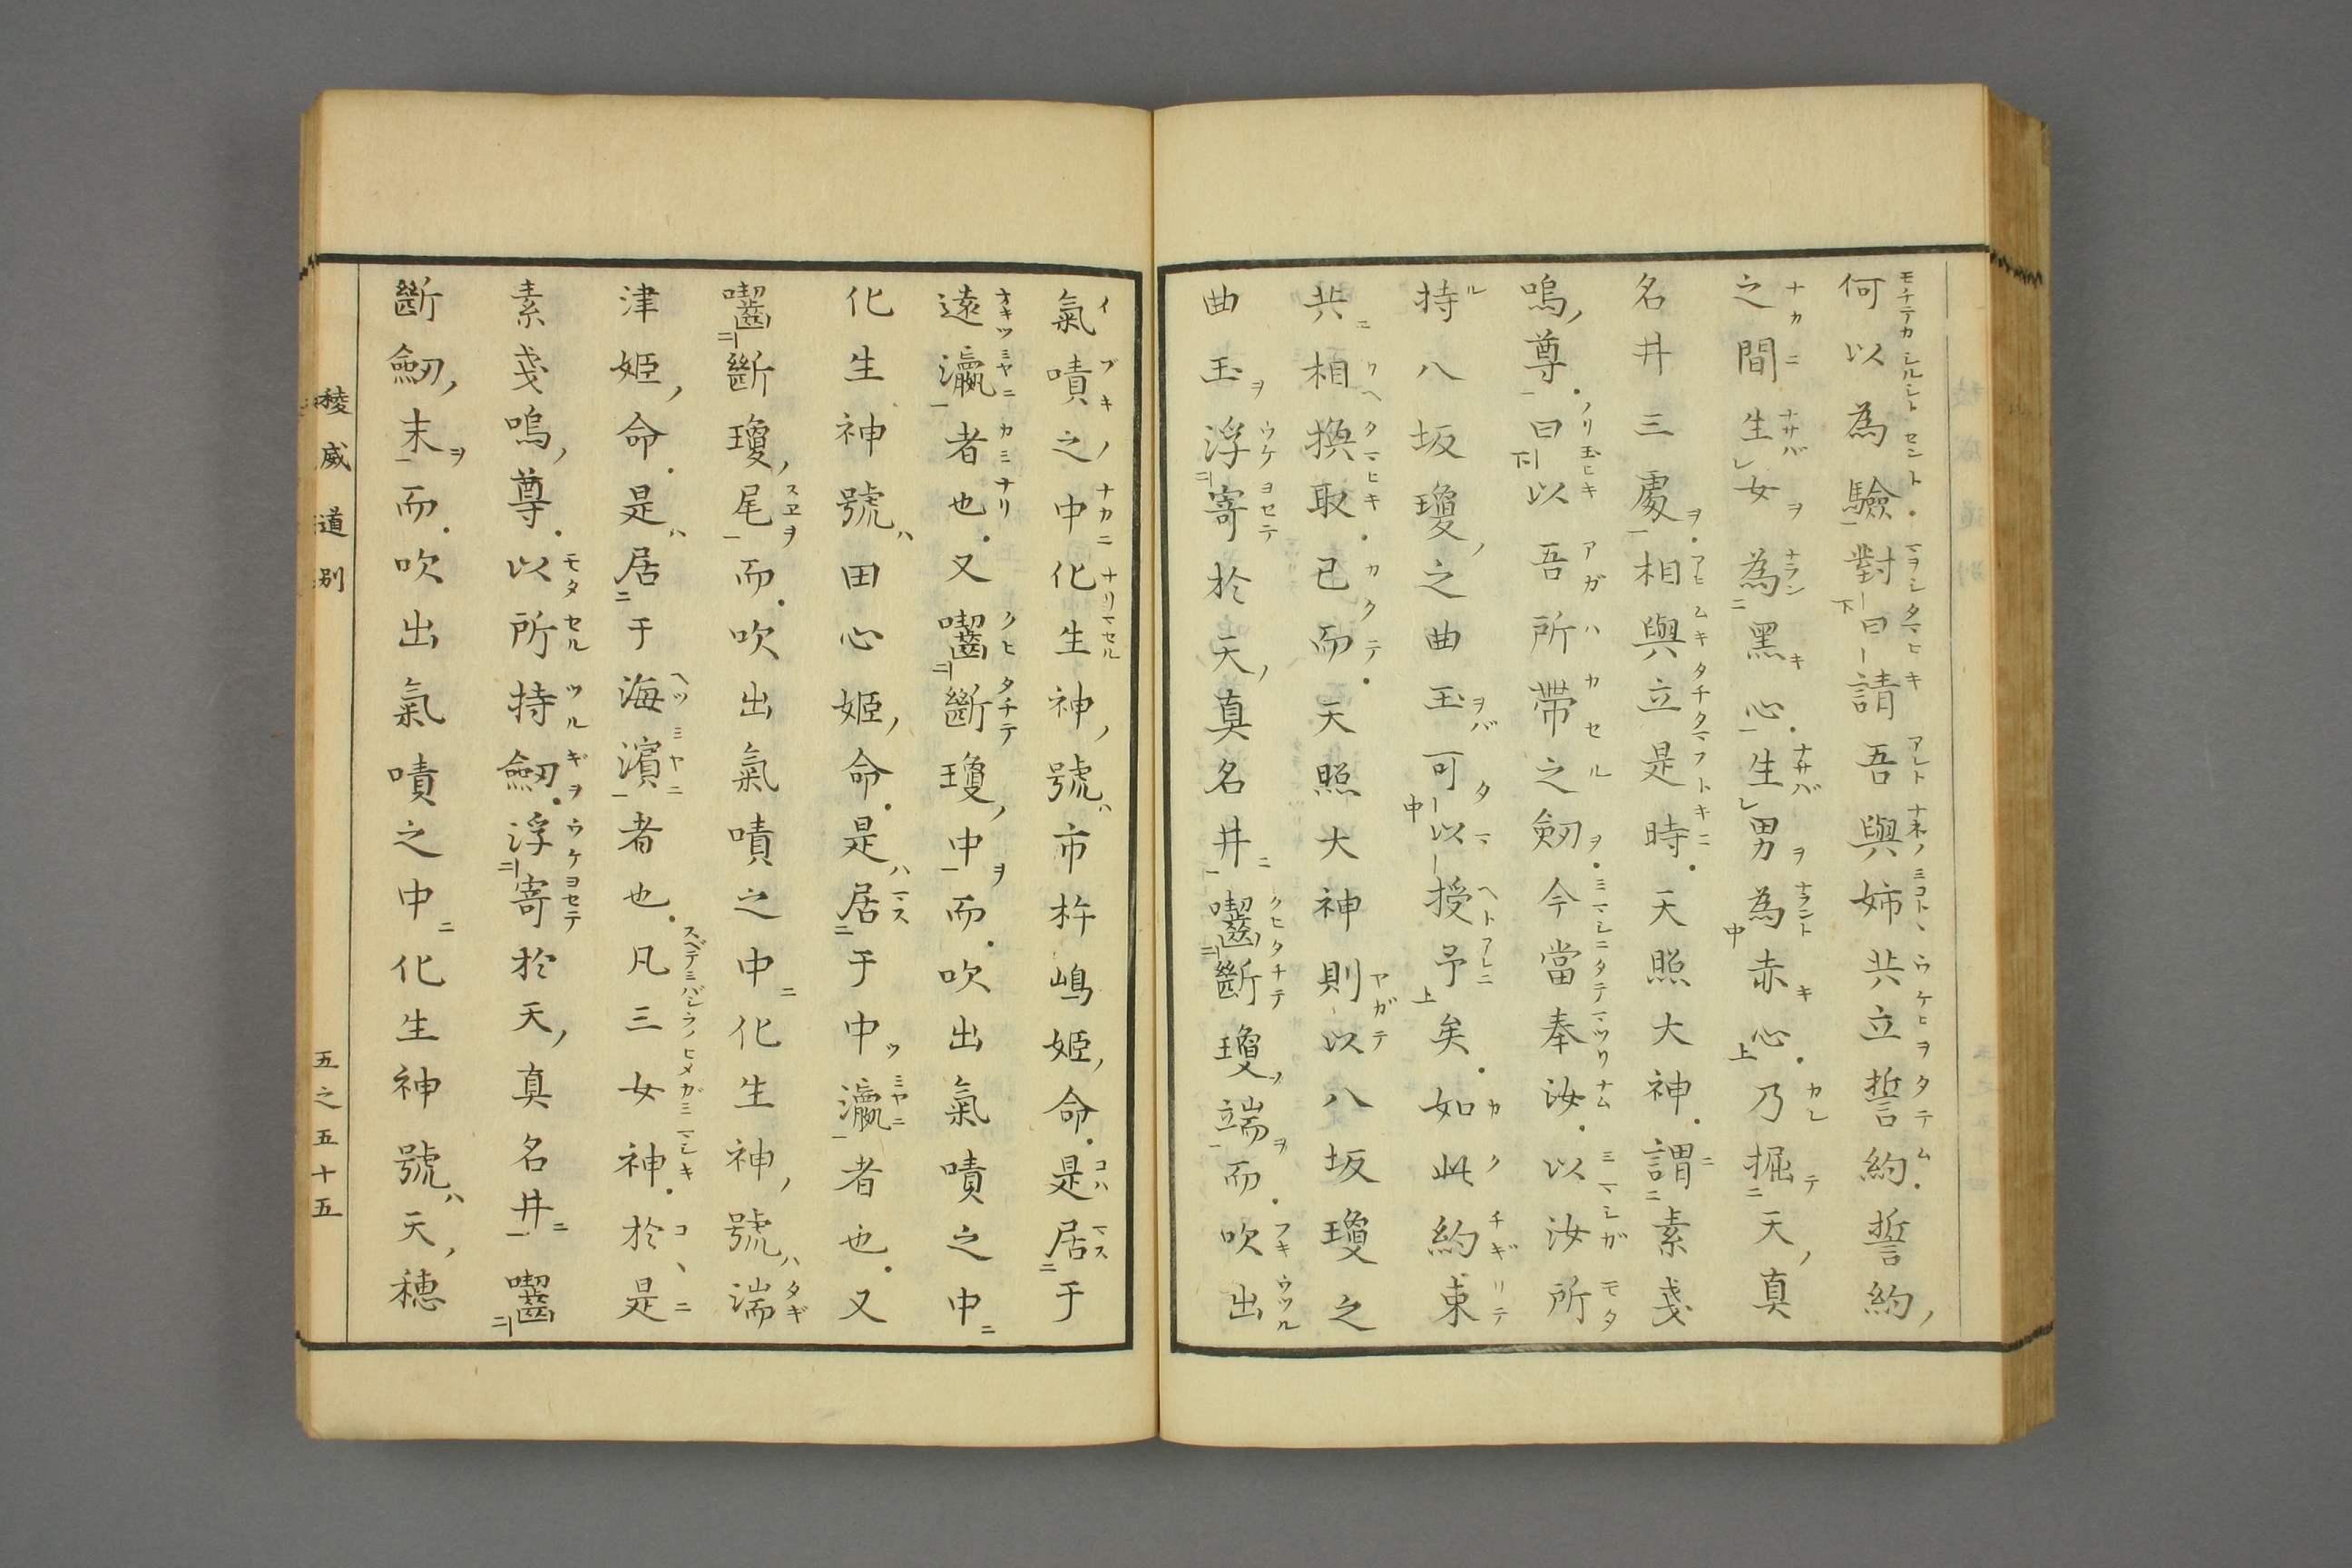 何以為驗對曰請吾與姉共立誓約誓約
之間生女為黑心生男為赤心乃掘天真
名井三處相與立是時天照大神謂素戔
嗚尊曰以吾所帶之劒今當奉汝以汝所
持八坂瓊之曲玉可以授予矣如此約束
共相換取已而天照大神則以八坂瓊之
曲玉浮寄於天真名井囓斷瓊端而吹出
氣嘖之中化生神號市杵嶋姬命是居于
遠瀛者也又囓斷瓊中而吹出氣嘖之中
化生神號田心姬命是居于中瀛者也又
囓斷瓊尾而吹出氣嘖之中化生神號湍
津姬命是居于海濱者也凡三女神於是
素戔嗚尊以所持劒浮寄於天真名井囓
斷劒末而吹出氣嘖之中化生神號天穗
稜威道別
五之五十五